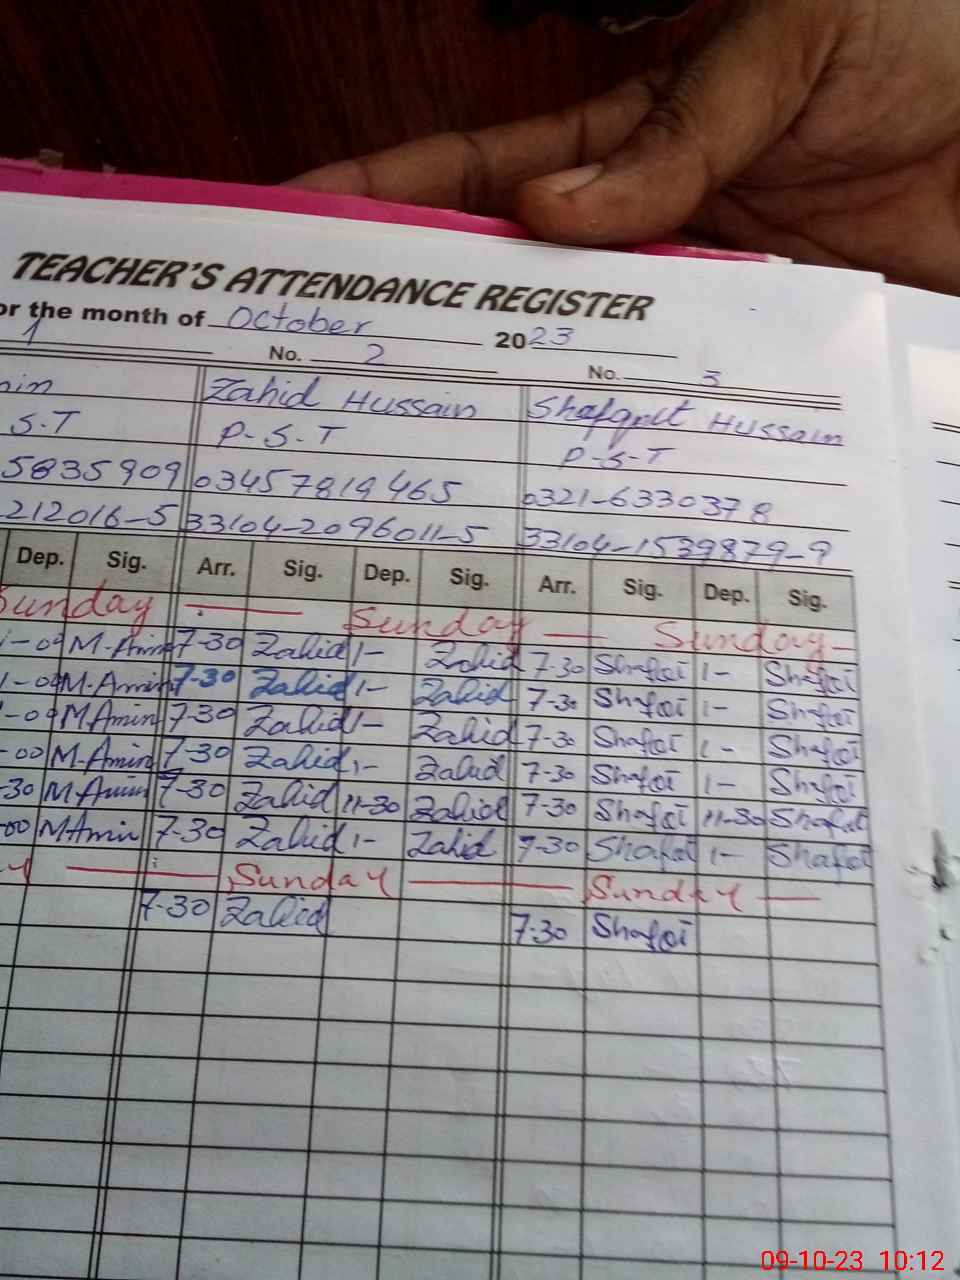 TEACHER'S ATTENDANCE REGISTER
or the month of October 2023
1 No. 2 No. 3
Zahid Hussain Shafqat Hussain
S.T P-S-T P-S-T
5835909 03457819465 0321-6330378
212016-5 33104-2096011-5 33104-1539879-9
Dep. Sig. Arr. Sig. Dep. Sig. Arr. Sig. Dep. Sig.
Sunday Sunday Sunday
M.Amin 7-30 Zahid 1- Zahid 7-30 Shafqt 1- Shafqt
M.Amin 7-30 Zahid 1- Zahid 7-30 Shafqt 1- Shafqt
M.Amin 7-30 Zahid 1- Zahid 7-30 Shafqt 1- Shafqt
-00 M.Amin 7-30 Zahid 1- Zahid 7-30 Shafqt 1- Shafqt
-30 M.Amin 7-30 Zahid 11-30 Zahid 7-30 Shafqt 11-30 Shafqt
-00 M.Amin 7-30 Zahid 1- Zahid 7-30 Shafqt 1- Shafqt
y Sunday Sunday
7-30 Zahid 7-30 Shafqt
09-10-23 10:12